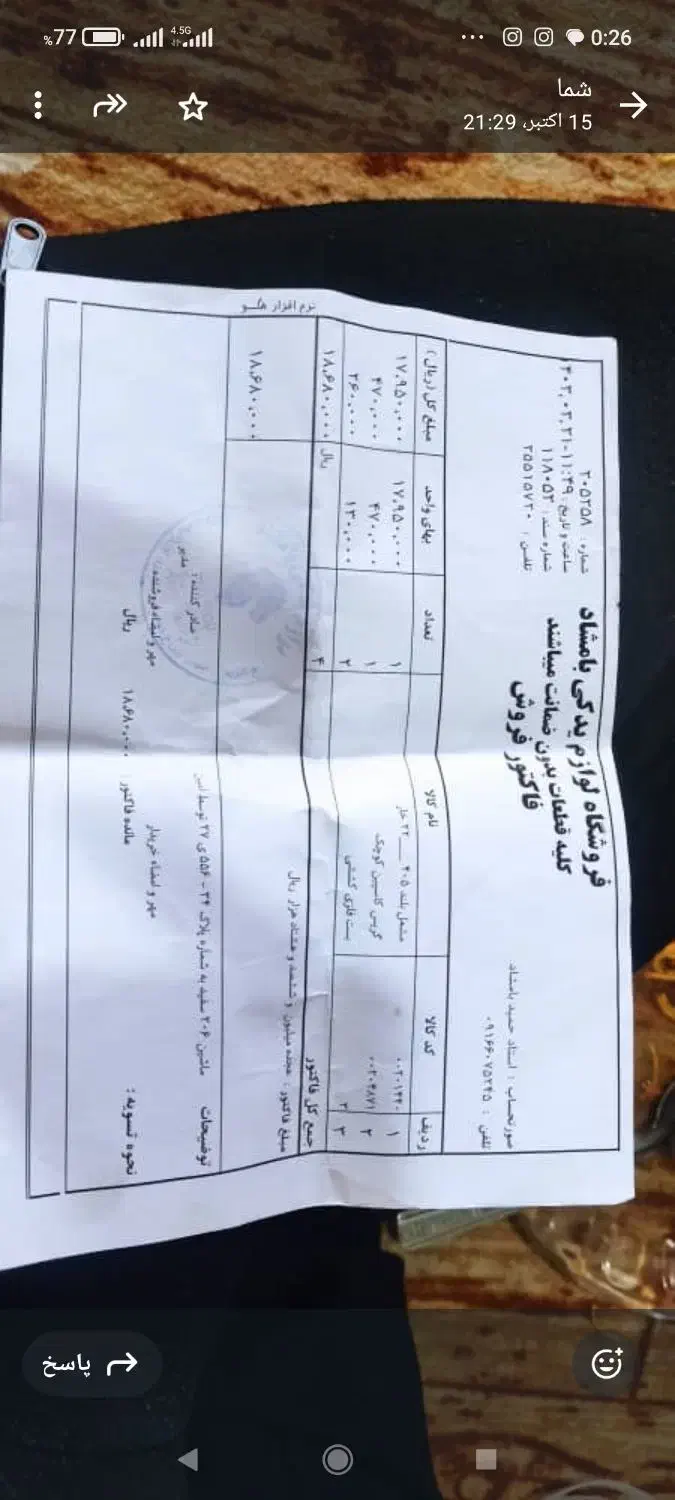 %77 4.5G 0:26
شما
15 اکتبر، 21:29
فروشگاه لوازم یدکی بامشاد
کلیه قطعات بدون ضمانت میباشند
فاکتور فروش
شماره : ۲۰۵۲۵۸
ساعت و تاریخ : ۱۱:۴۹-
شماره سند : ۱۱۸۰۵۲
تلفن : ۳۵۵۱۵۷۲۰
صورتحساب : استاد حمید بامشاد
تلفن : ۰۹۱۶۶۰۷۵۲۴۵
ردیف کد کالا نام کالا تعداد بهای واحد مبلغ کل (ریال)
۱ ۰۰۲۰۱۴۴۰ مشعل بلند ۴۰۵ __ ۲۲ خار ۱ ۱۷،۹۵۰،۰۰۰ ۱۷،۹۵۰،۰۰۰
۲ ۰۰۲۰۴۸۷۱ گریس کاسپین کوچک ۱ ۴۷۰،۰۰۰ ۴۷۰،۰۰۰
۳ ۳ بست فلزی کششی ۲ ۱۳۰،۰۰۰ ۲۶۰،۰۰۰
جمع کل فاکتور ۴ ریال ۱۸،۶۸۰،۰۰۰
مبلغ فاکتور : هجده میلیون و ششصد و هشتاد هزار ریال
۱۸،۶۸۰،۰۰۰
توضیحات ماشین ۲۰۶ سفید به شماره پلاک ۳۴ - ۵۵۶ ی ۲۷ توسط امین
صادر کننده : مدیر
مهر و امضاء خریدار مهر و امضاء فروشنده
نحوه تسویه : مانده فاکتور : ۱۸،۶۸۰،۰۰۰ ریال
نرم افزار هلو
پاسخ